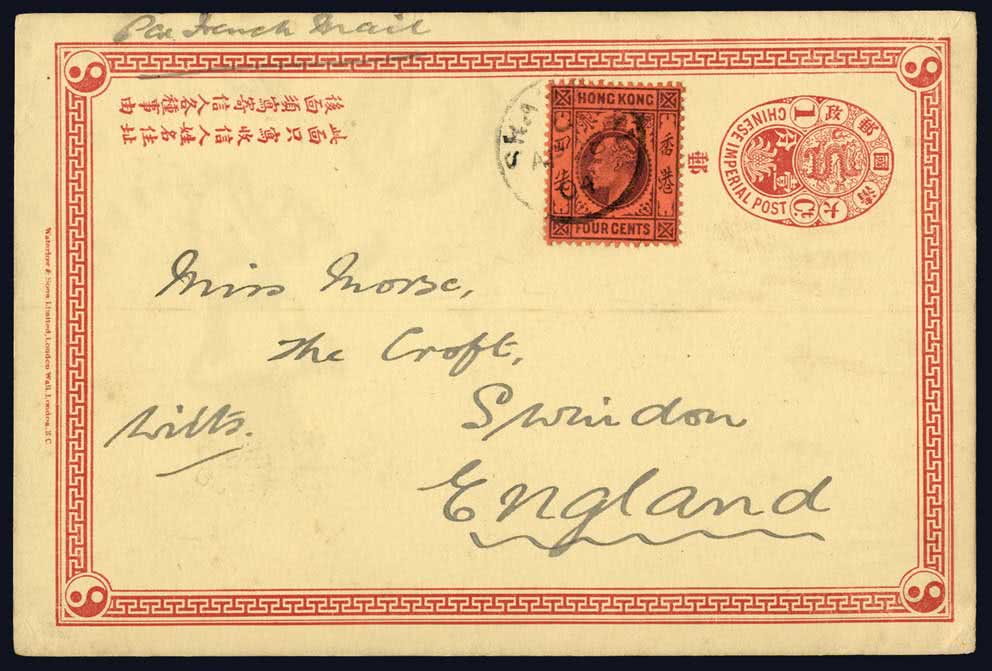 Per French Mail
此面只寫收信人姓名住址
後面須寫寄信人各種事由
HONG KONG
香港
FOUR CENTS
郵
大清國郵政
CHINESE IMPERIAL POST
1 Ct.
壹分
Miss Morse,
The Croft,
Swindon
Wilts.
England
Waterlow & Sons Limited, London Wall, London, E.C.